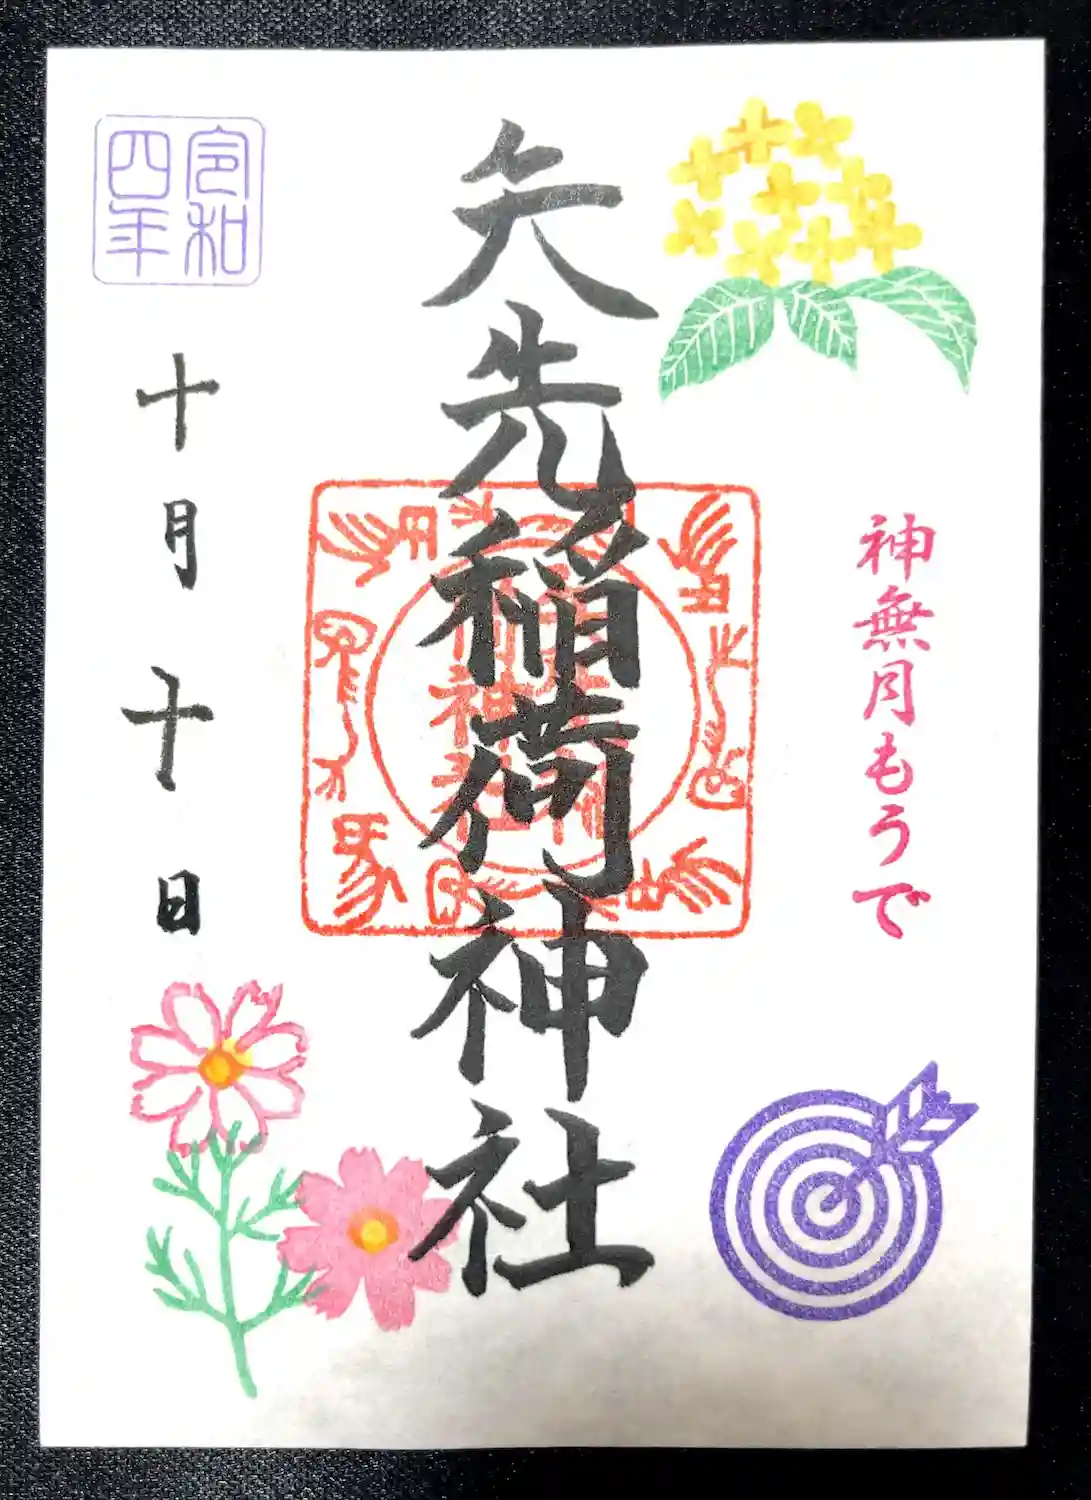 神無月もうで
矢先稲荷神社
令和
四年
十月十日